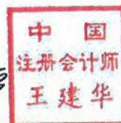 中国
注册会计师
王建华